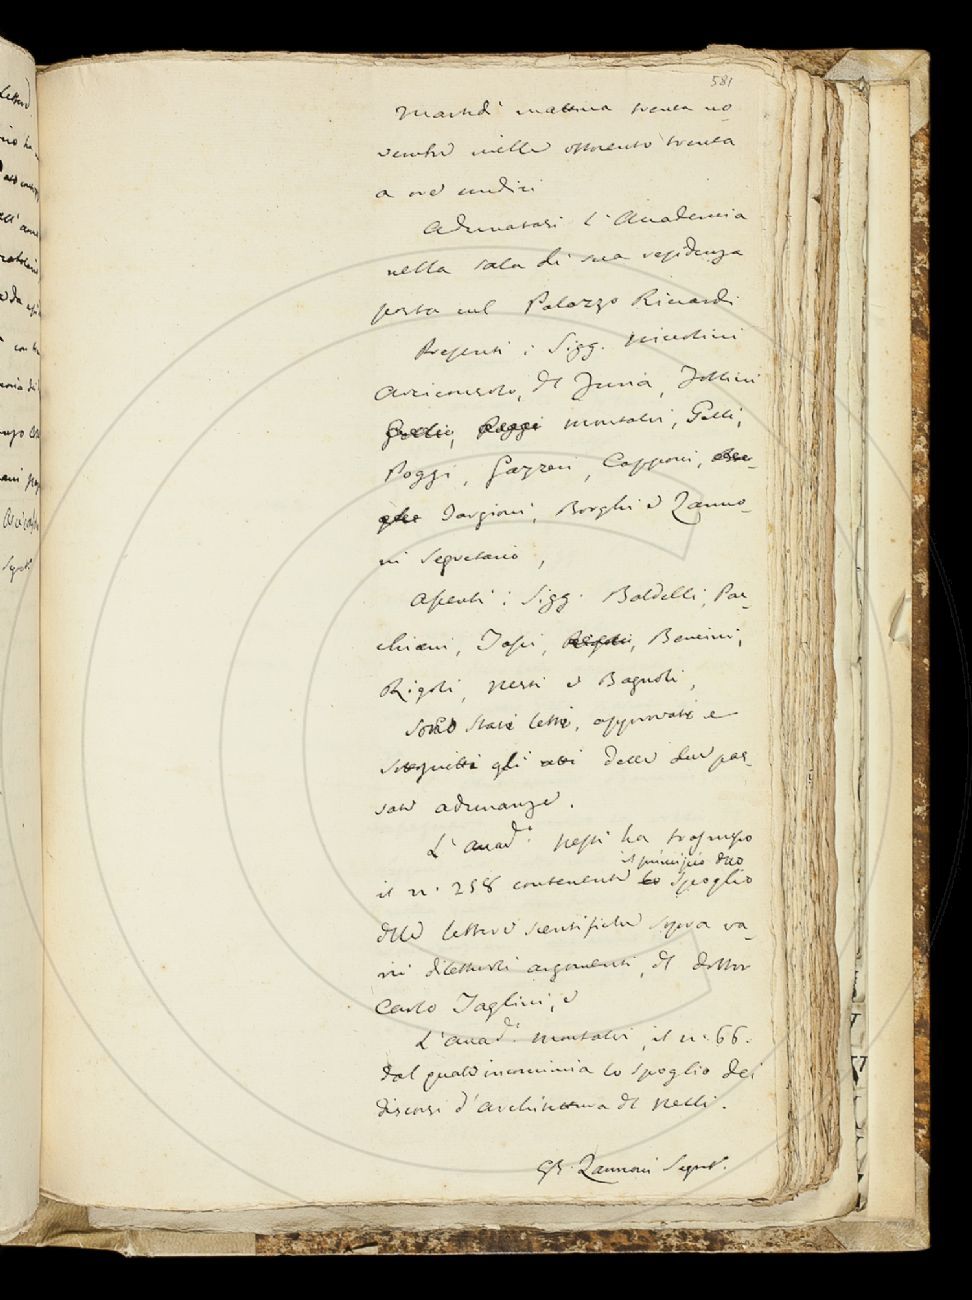 581
Martedì mattina trenta no-
vembre mille ottocento trenta
a ore undici
Adunatasi l'Accademia
nella sala di sua residenza
posta nel Palazzo Riccardi
Presenti i Sigg. Niccolini
Arciconsolo, Del Furia, Follini
Montalvi, Gelli,
Poggi, Gazzeri, Capponi,
Targioni, Borghi e Zanno-
ni Segretario,
Assenti i Sigg. Baldelli, Par-
chiani, Tassi, Bencini,
Rigoli, Nesti e Bagnoli,
Sono stati letti, approvati e
gli atti delle due pas-
sate adunanze.
L'Accad.o Nesti ha trasmesso
il principio dello
il n.o 258 contenente lo spoglio
delle lettere scientifiche sopra va-
rii dilettevoli argomenti, del dottor
Carlo Taglini, e
L'Accad.o Montalvi, il n.o 66.
dal quale incomincia lo spoglio dei
discorsi d'architettura del Nelli.
GB. Zannoni Segret.o